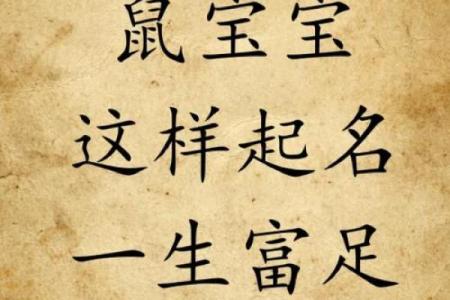 鼠宝宝
这样起名
一生富足